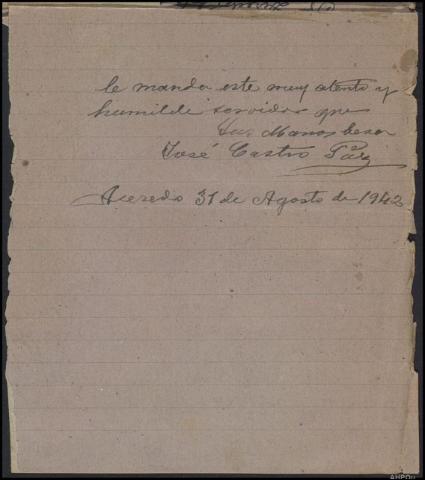 le manda este muy atento y
humilde servidor que
sus Manos besa
José Castro Páz
Acevedo 31 de Agosto de 1942
AHPOu